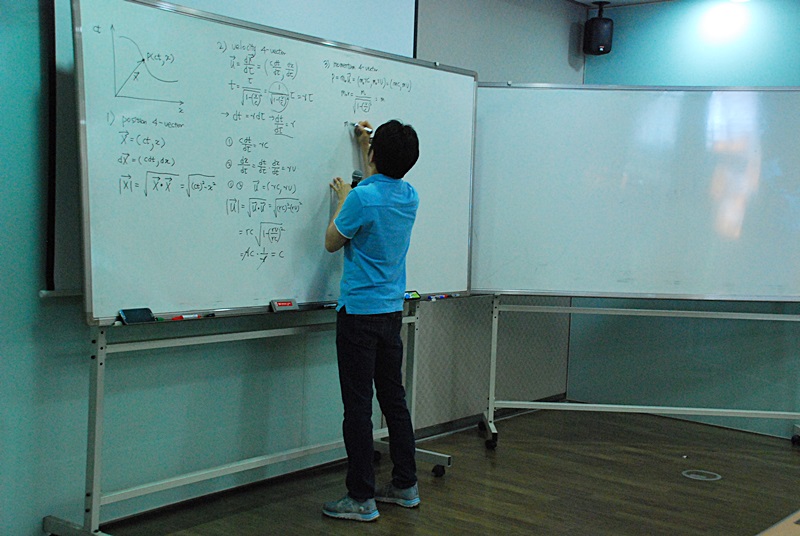 ct
P(ct, x)
X⃗
x
1) position 4-vector
X⃗ = (ct, x)
dX⃗ = (cdt, dx)
|X⃗| = √(X⃗·X⃗) = √((ct)²-x²)
2) velocity 4-vector
u⃗ = dX⃗/dτ = (cdt/dτ, dx/dτ)
t = τ/√(1-(v/c)²) = 1/√(1-(v/c)²) τ = rτ
→ dt = rdτ → dt/dτ = r
① cdt/dτ = rc
② dx/dτ = dt/dτ · dx/dt = rv
①② u⃗ = (rc, rv)
|u⃗| = √(u⃗·u⃗) = √((rc)²-(rv)²)
= rc√(1-(rv/rc)²)
= rc · 1/r = c
3) momentum 4-vector
p⃗ = m₀u⃗ = (m₀rc, m₀rv) = (mc, mv)
m₀r = m₀/√(1-(v/c)²) = m